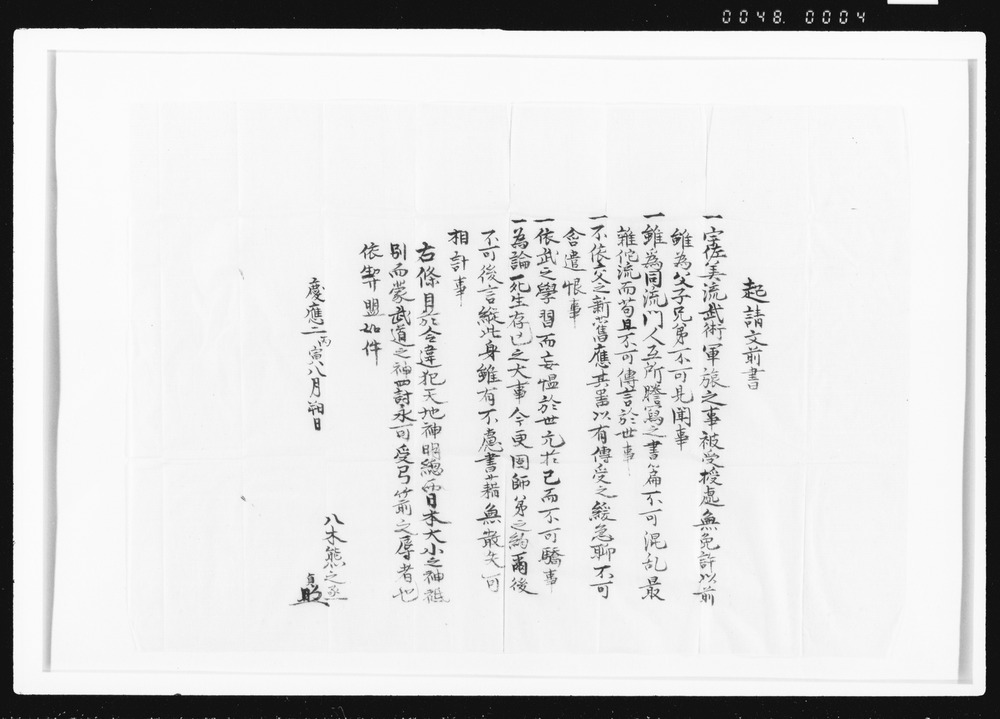 0048.0004
起請文前書
一宇佐美流武術軍旅之事被受授處無免許以前
雖為父子兄弟不可見聞事
一雖為同流門人互所謄寫之書篇不可混乱最
雜佗流而苟且不可傳言於世事
一不依父之新舊應其器以有傳受之緩急聊不可
含遺恨事
一依武之學習而妄慍於世亢於己而不可驕事
一為論死生存亡之大事今更固師弟之約爾後
不可後言縱此身雖有不慮書藉無散失可
相計事
右條目於令違犯天地神明總而日本大小之神祇
別而蒙武道之神罸討永可受弓箭之辱者也
依契盟如件
慶應二丙寅八月朔日
八木熊之丞